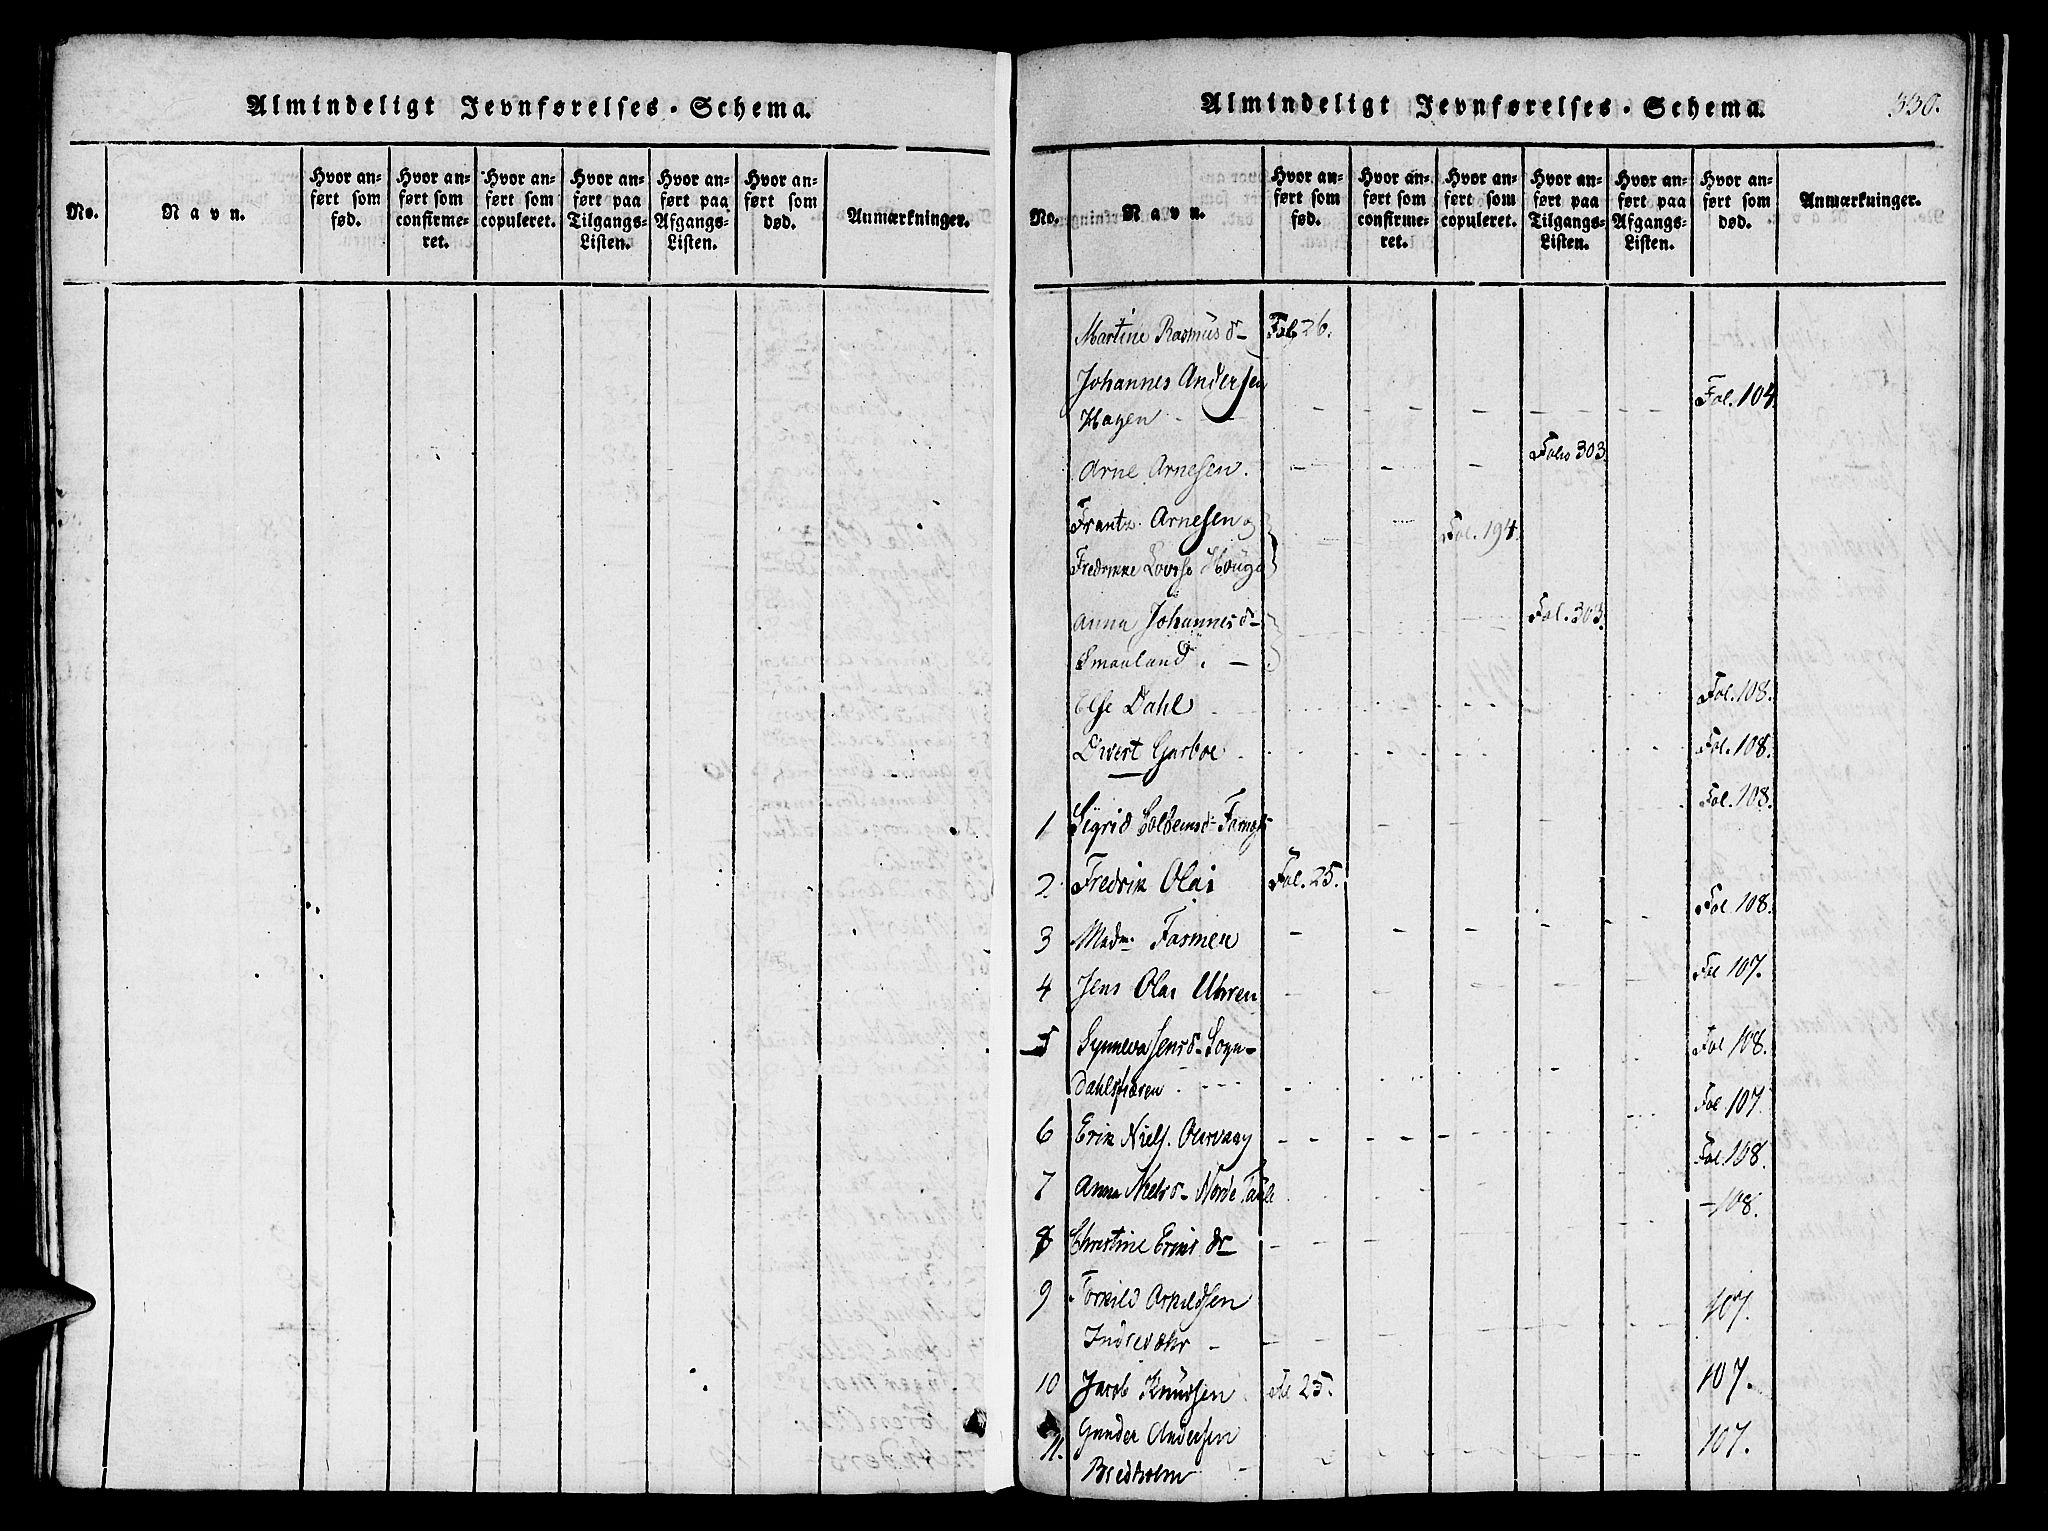 Almindeligt Jevnførelses-Schema.
No.
Navn.
Hvor anført som fød.
Hvor anført som confirmeret.
Hvor anført som copuleret.
Hvor anført paa Tilgangs-Listen.
Hvor anført paa Afgangs-Listen.
Hvor anført som død.
Anmærkninger.
Almindeligt Jevnførelses-Schema.
330.
No.
Navn.
Hvor anført som fød.
Hvor anført som confirmeret.
Hvor anført som copuleret.
Hvor anført paa Tilgangs-Listen.
Hvor anført paa Afgangs-Listen.
Hvor anført som død.
Anmærkninger.
Martine Rasmusd- Fol 26.
Johannes Andersen
Hagen - Fol. 104.
Arne Arnesen. Folio 303.
Frantz Arnesen og Fol. 194.
Fredrikke Lovise
Anna Johannesd- Fol. 303.
Smaaland. -
Else Dahl Fol. 108.
Sivert Garboe Fol. 108.
1 Sigrid Fol. 108.
2. Fredrik Olai Fol. 25.
3 Madm. Fasmer Fol 108.
4 Jens Olai Uhren Fol 107.
5 Synneva Jensd. Sogn- Fol 108.
Dahlsfiæren
6 Erik Niels. Fol. 107.
7 Anna Nielsd- Nordre Fol. 108.
8 Christine Eriksdr - 108.
9 Torkild Arkildsen
Indrevæhr - 107.
10 Jacob Knudsen Fol 25. 107.
11. Gunder Andersen 107.
Bredholm